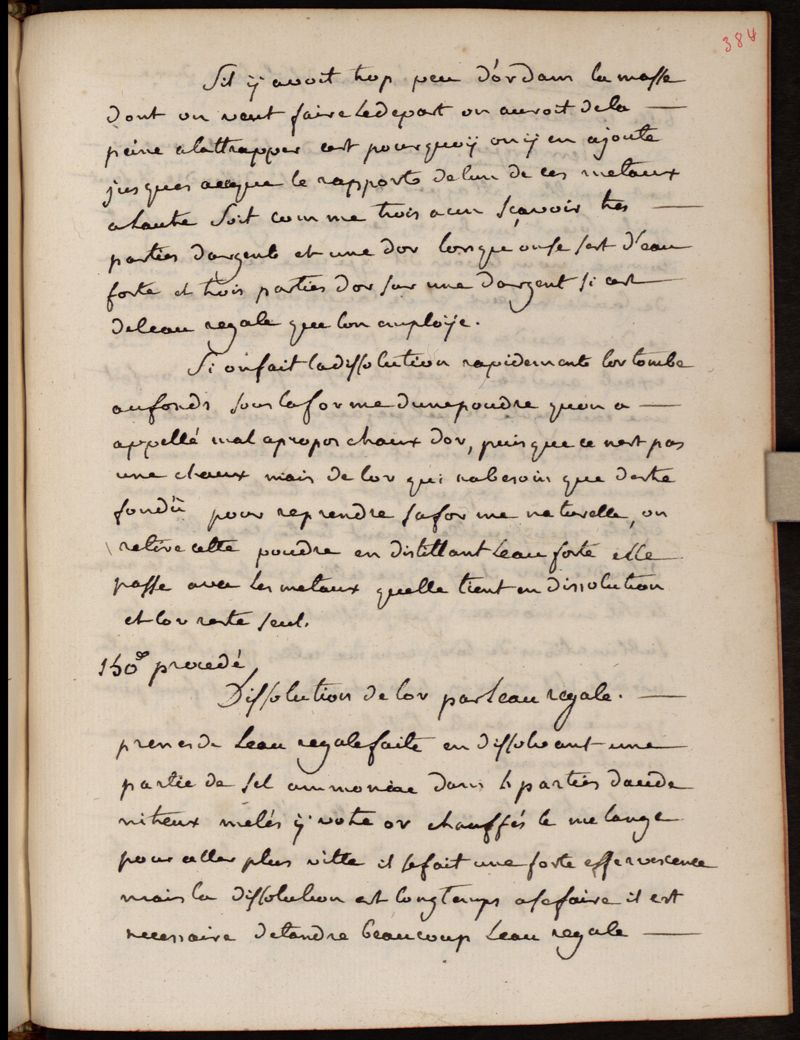 384
S'il ÿ avoit trop peu d'or dans la masse
dont on veut faire Le depart on auroit de la
peine a lattrapper cest pourquoÿ on ÿ en ajoute
jusques acequ le rapporte de lun de ces metaux
a lautre Soit comme trois a un sçavoir tres
parties dargente et une dor lorsque on se sert d'eau
forte et trois parties dor sur une dargent si cest
deleau regale que lon emploÿe.
Si on fait la dissolution rapidemente lor tombe
au fonds sous la forme dune poudre quon a
appellé mal apropos chaux dor, puis que ce nest pas
une chaux mais de lor qui na besoin que destre
fondü pour reprendre sa forme naturelle, on
retire cette poudre en distillant Leau forte elle
passe avec Les metaux quelle tient en dissolution
et lor reste seul.
150e procedé
Dissolution de lor par Leau regale.
prenes de Leau regale faite en dissolvant une
partie de sel ammoniac dans 4 parties dacide
nitreux melés ÿ votre or chauffés le melange
pour aller plus vitte il se fait une forte effervescence
mais la dissolution est longtemps a se faire il est
necessaire detandre beaucoup Leau regale